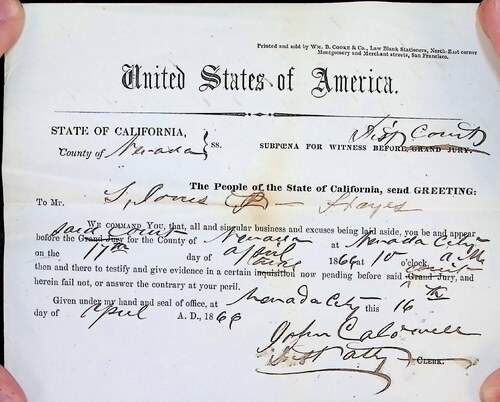 Printed and sold by WM. B. COOKE & CO., Law Blank Stationers, North-East corner
Montgomery and Merchant streets, San Francisco.
United States of America.
STATE OF CALIFORNIA,
County of Nevada } ss.
Dist Court
SUBPŒNA FOR WITNESS BEFORE GRAND JURY.
The People of the State of California, send GREETING:
To Mr. Hayes
WE COMMAND YOU, that, all and singular business and excuses being laid aside, you be and appear
said Court
before the Grand Jury for the County of Nevada at Nevada City
on the 17th day of April 1866 at 10 o'clock, A M
then and there to testify and give evidence in a certain inquisition now pending before said Grand Jury, and
Court
herein fail not, or answer the contrary at your peril.
Given under my hand and seal of office, at Nevada City this 16th
day of April A. D., 1866
John Caldwell
Dist Atty CLERK.